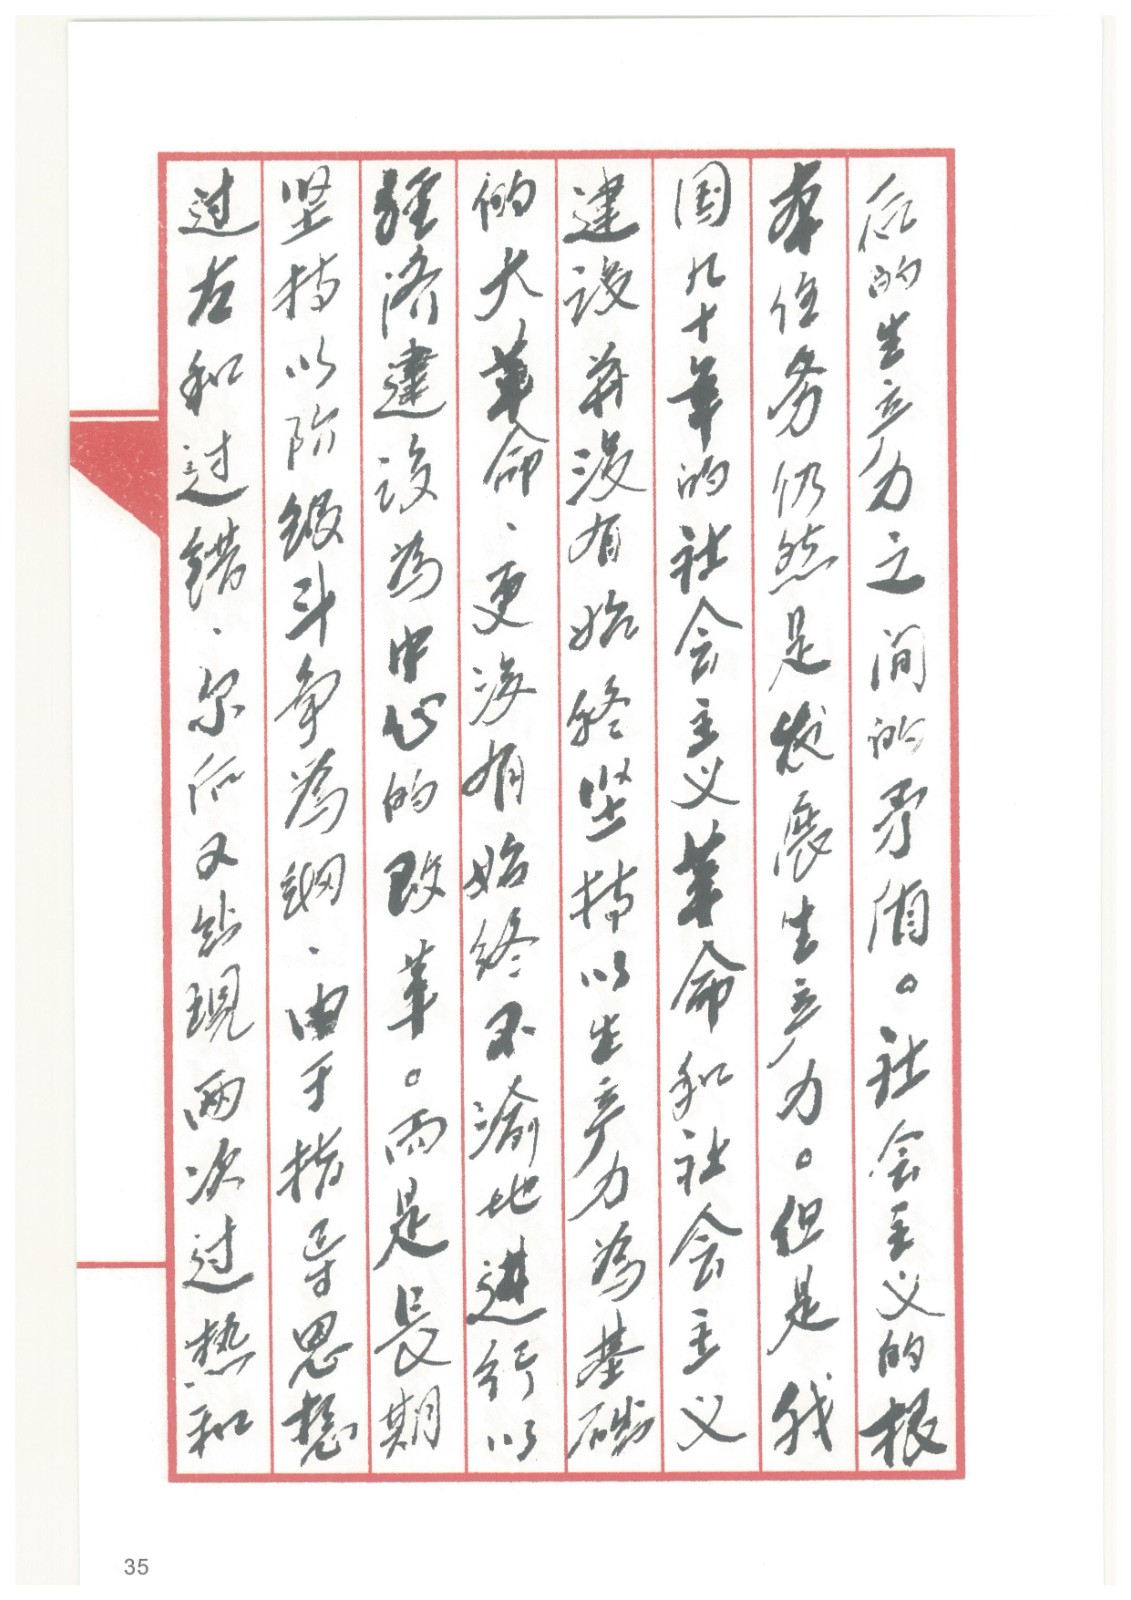 后的生产力之间的矛盾。社会主义的根
本任务仍然是发展生产力。但是我
国几十年的社会主义革命和社会主义
建设并没有始终坚持以生产力为基础
的大革命、更没有始终不渝地进行以
经济建设为中心的改革。而是长期
坚持以阶级斗争为纲、由于指导思想
过左和过错、尔后又出现两次过热和
35